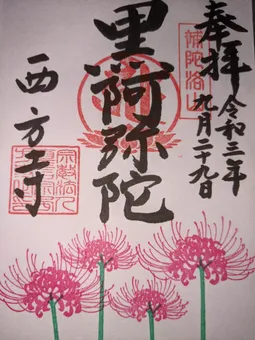 奉拝
令和三年
九月二十九日
補陀洛山
黒阿弥陀
西方寺